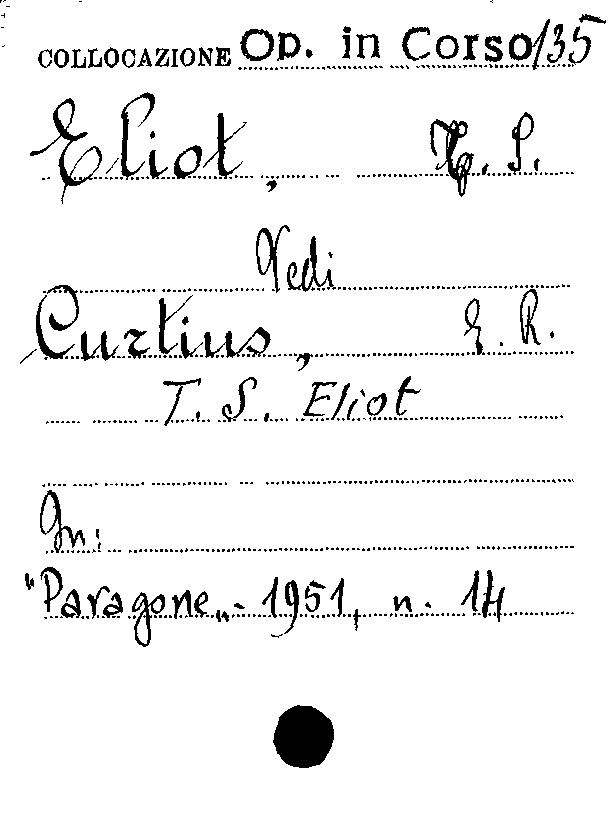 COLLOCAZIONE Op. in Corso 135
Eliot, T. S.
Vedi
Curtius, E. R.
T. S. Eliot
In:
"Paragone„ - 1951, n. 14